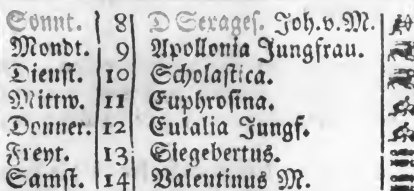 Sonnt. 8 D Sexages. Joh. v. M.
Mondt. 9 Apollonia Jungfrau.
Dienst. 10 Scholastica.
Mittw. 11 Euphrosina.
Donner. 12 Eulalia Jungf.
Freyt. 13 Siegebertus.
Samst. 14 Valentinus M.